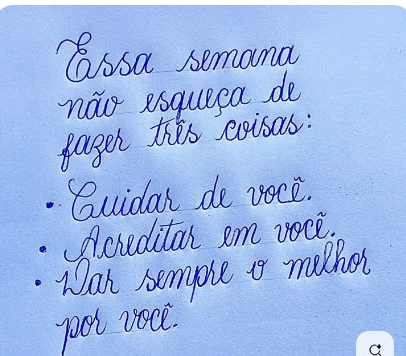 Essa semana
não esqueça de
fazer três coisas:
• Cuidar de você.
• Acreditar em você.
• Dar sempre o melhor
por você.